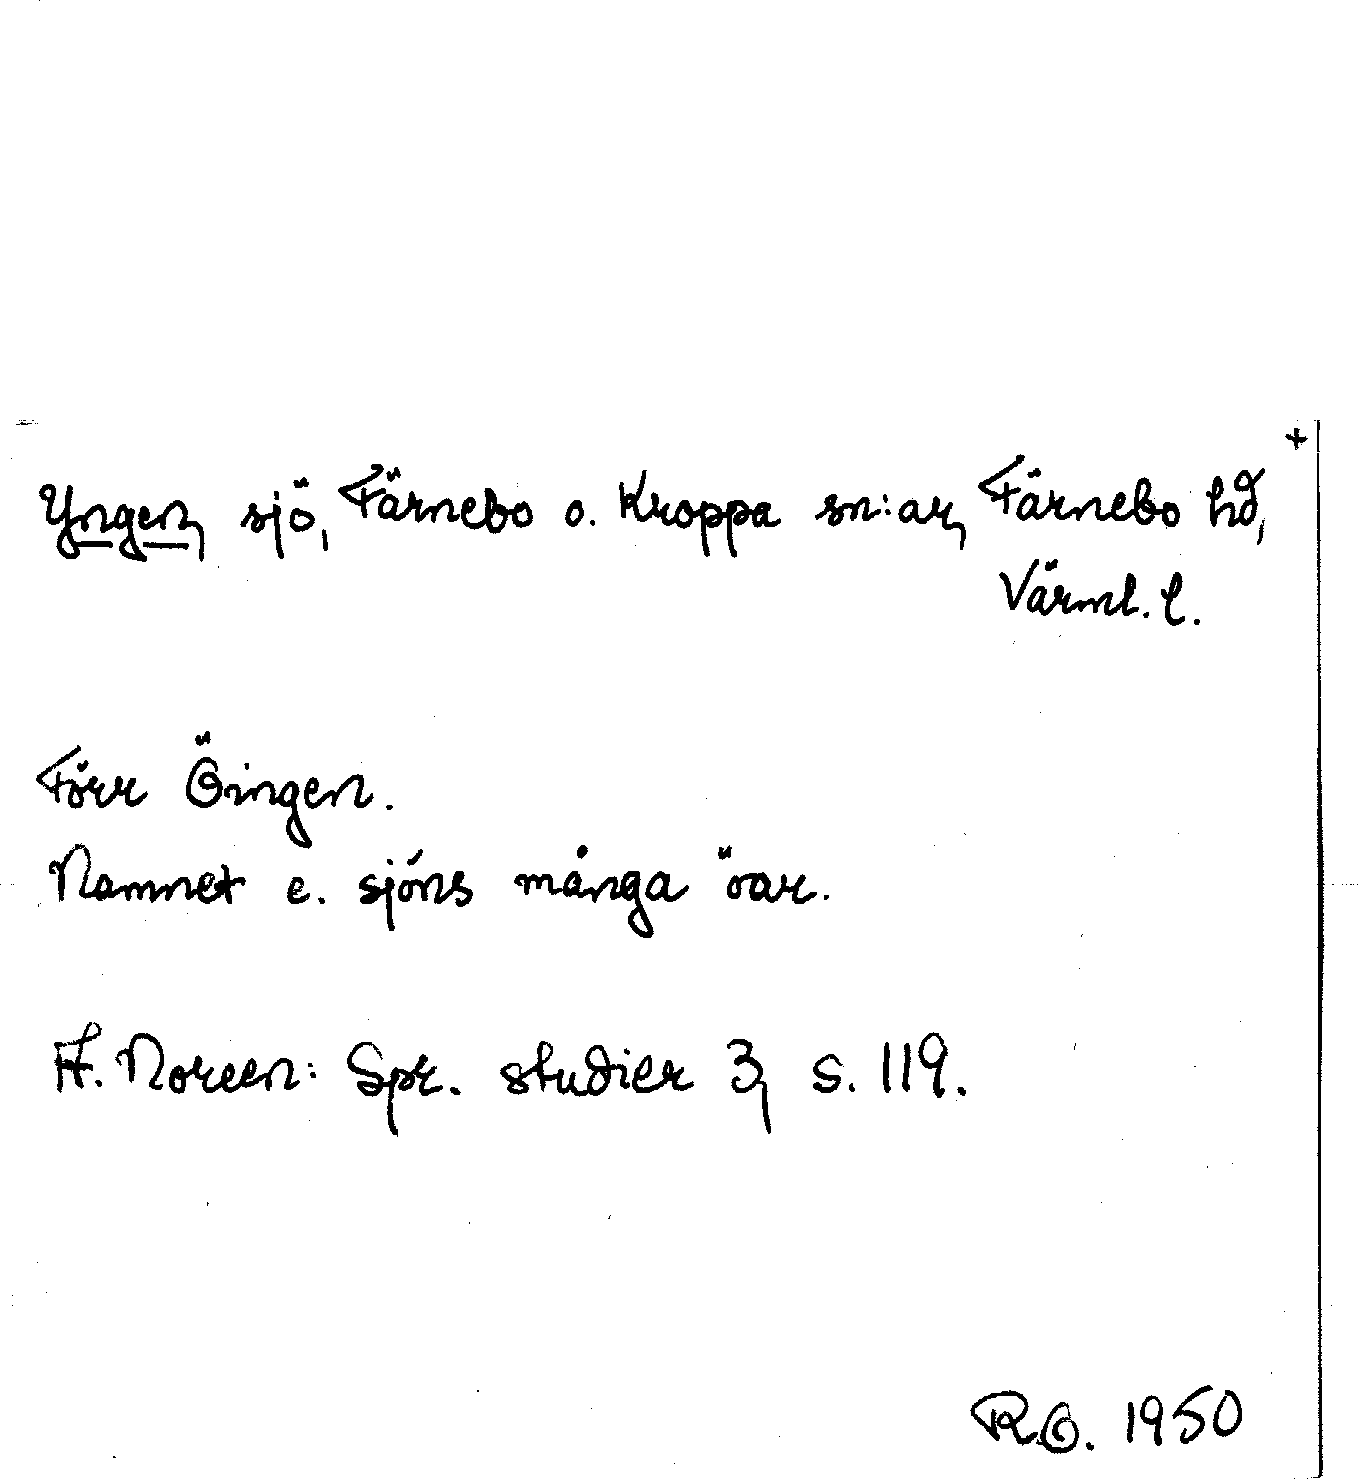 +
Yngen, sjö, Färnebo o. Kroppa sn:ar, Färnebo hd,
Värml. l.
Förr Öingen.
Namnet e. sjöns många öar.
A. Noreen: Spr. studier 3, s. 119.
R.O. 1950